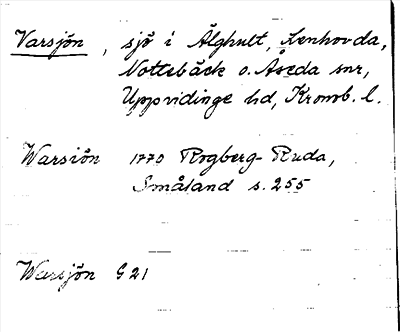 Varsjön, sjö i Älghult, Lenhovda,
Nottebäck o. Åseda snr,
Uppvidinge hd, Kronob. l.
Warsiön 1770 Rogberg-Ruda,
Småland s. 255
Warsjön G 21